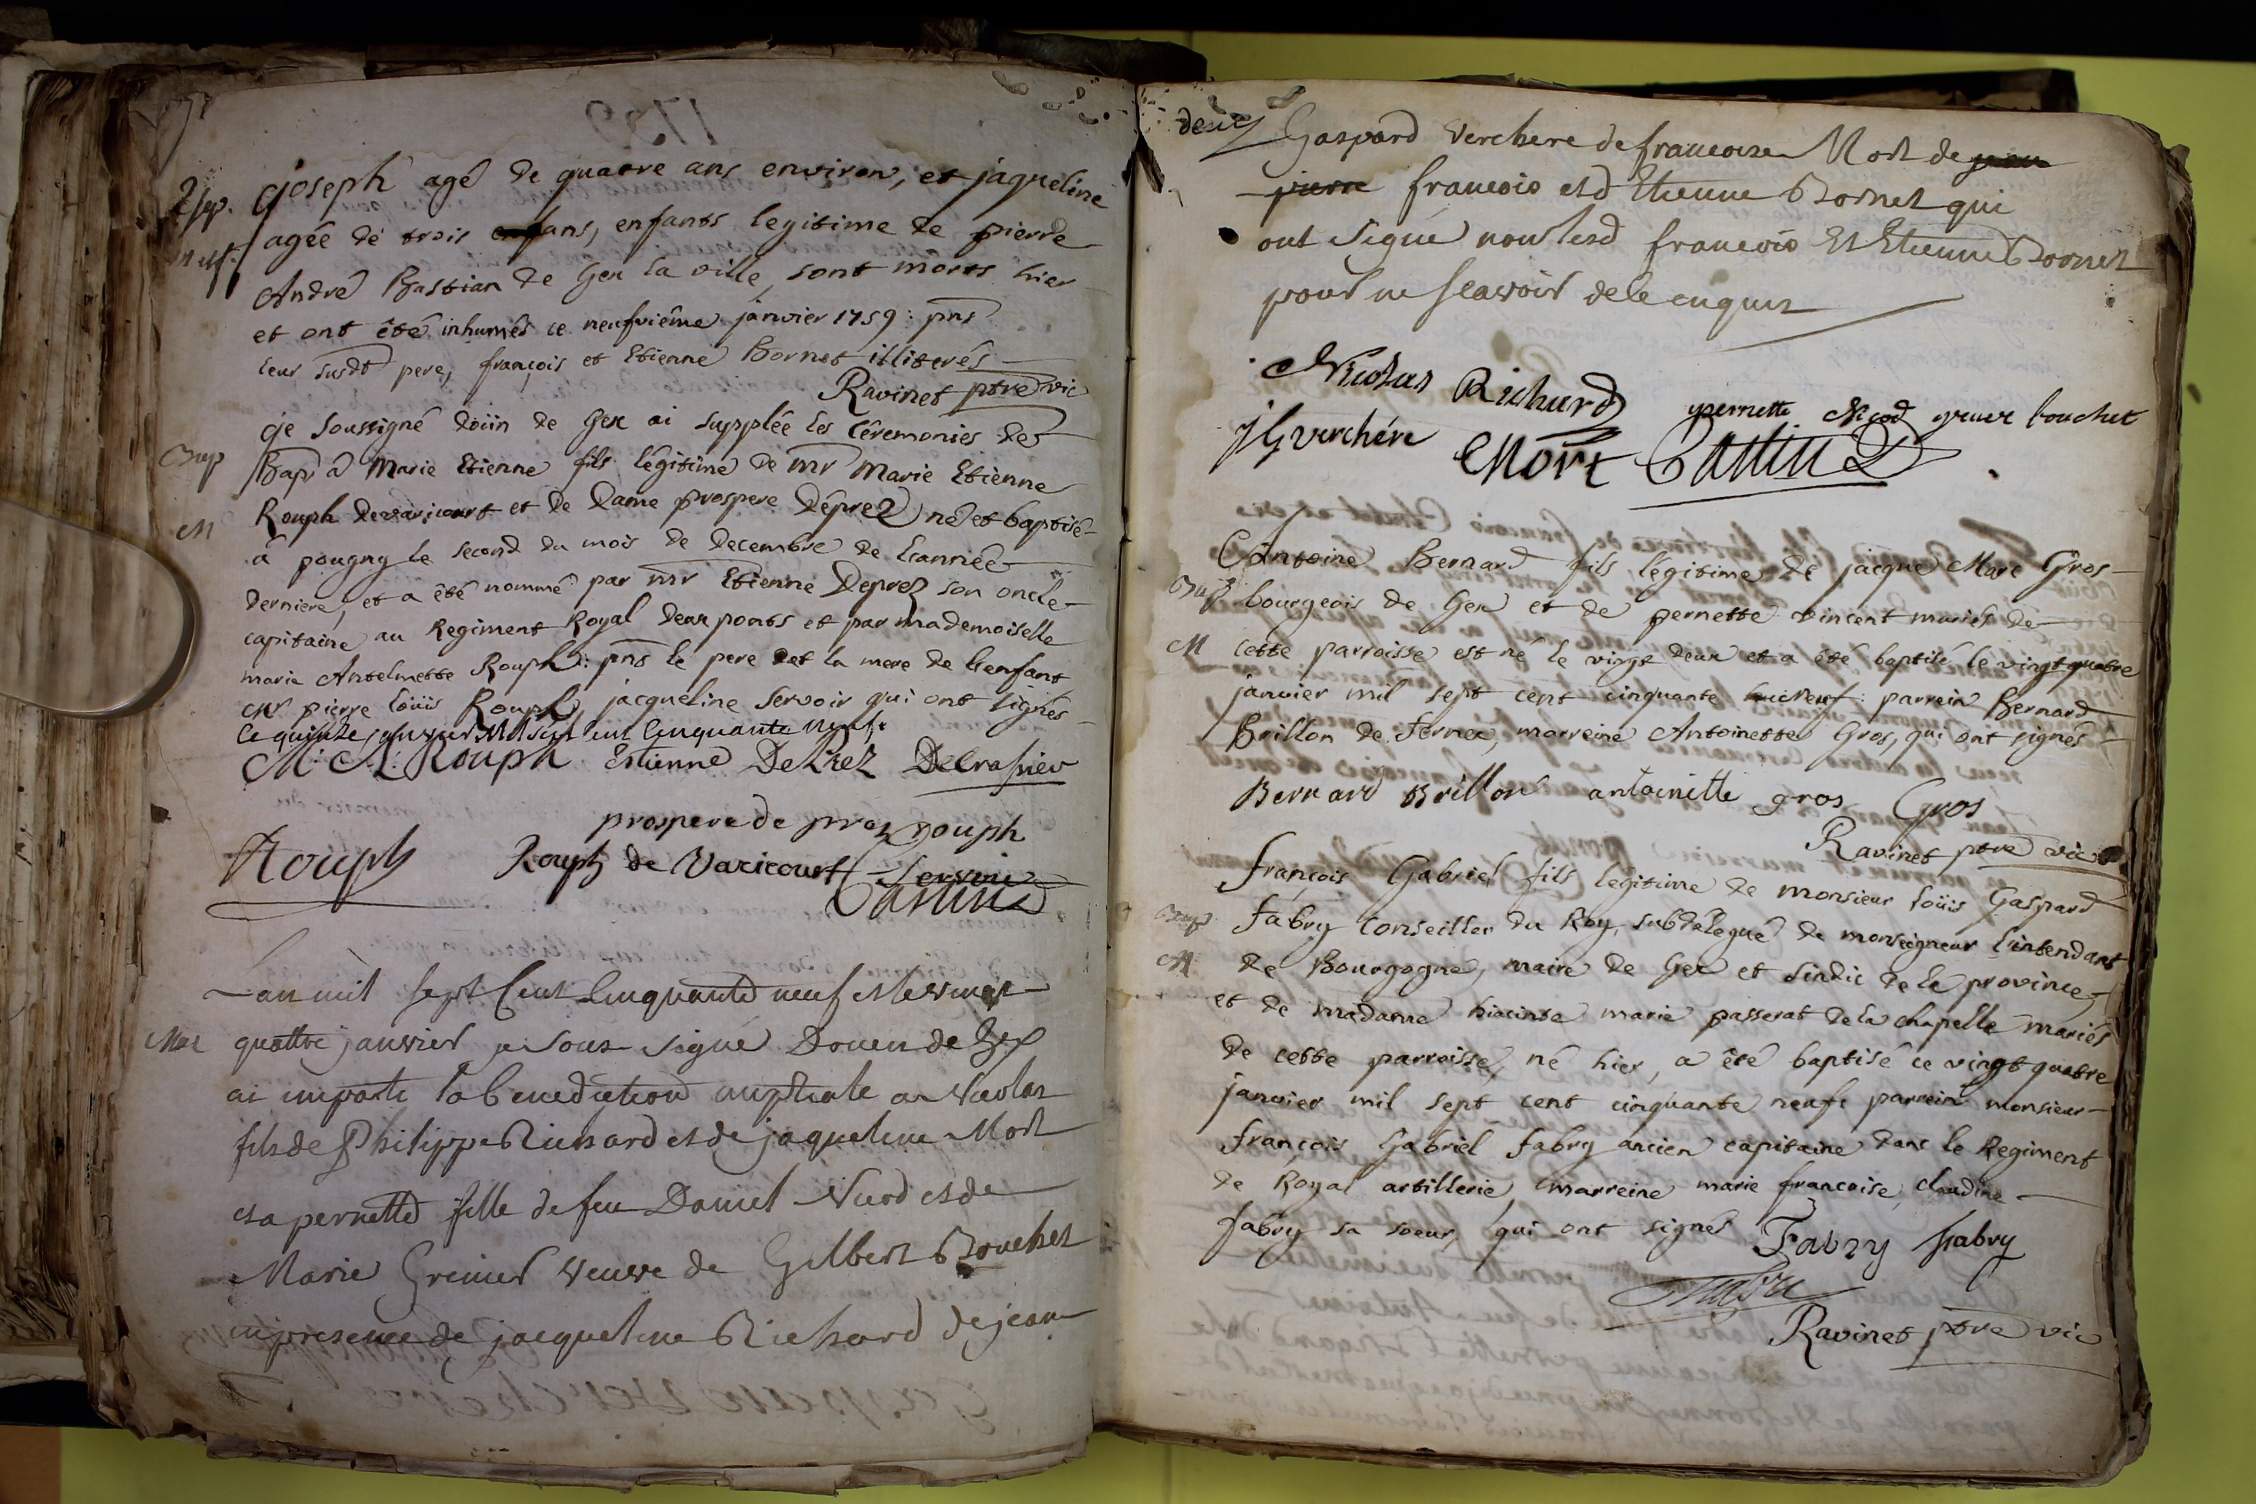 joseph agé de quatre ans environ, et jaqueline
agée de trois ans, enfants legitime de pierre
André Bastian de Gex la ville, sont morts hier
et ont été inhumés ce neufvième janvier 1759: pns
leur susdt pere, françois et Etienne Bornet illiterés
Ravinet ptre vic
je soussigné doiin de Gex ai supplée les Céremonies de
Bap
Bap à Marie Etienne fils légitime de mr Marie Etienne
Rouph devaricourt et de Dame prospere Déprez né et baptisé
M
à pougny le second du mois de Decembre de L'année
derniere, et a été nommé par mr Etienne Deprez son oncle
capitaine au Regiment Royal deux ponts et par mademoiselle
marie Antelmette Rouph: pns le pere et la mere de l'enfant
mr pierre loüis Rouph, jacqueline Servoir qui ont signés
ce quinze janvier Mil sept cent Cinquante Neuf
M: A: Rouph Estienne DePrez Delrasriev
prospere de prez rouph
Rouph Rouph de Varicourt Servoir
Castin
Lan mil sept Cent Cinquante neuf et le vingt
Mar quattre janvier je sous signé Douen de Gex
ai imparti la benediction nuptiale a Nicolas
fils de Philippe Richard et de jaqueline Mort
et a pernette fille de feu Daniel Nicod et de
Marie Grenier veuve de Gilbert Bouchet
en presence de jacqueline Richard de jean
deux
Gaspard Verchere de francoise Mort de
pierre francois et d Etienne Bornet qui
ont signé non lesd francois Et Etienne Bornet
pour ne scavoir de ce enquis
Nicolas Richard pernette Nicod veuve bouchet
J G verchére Mort Castin D
Antoine Bernard fils legitime de jacque Marc Gros
Bap bourgeois de Gex et de pernette vincent mariés de
M cette parroisse est né le vingt deux et a été baptisé le vingt quatre
janvier mil sept cent cinquante neuf: parrein Bernard
Brillon de Fernex, marreine Antoinette Gros, qui ont signés
Bernard Brillon antoinette gros Gros
Ravinet ptre vic
françois Gabriel fils legitime de monsieur loüis Gaspard
Bap fabry Conseiller du Roy, subdélegué de monseigneur l'intendant
M de Bourgogne, maire de Gex et sindic de le province
et de madame hiacinte marie passerat de la chapelle mariés
de cette parroisse, né hier, a été baptisé ce vingt quatre
janvier mil sept cent cinquante neufs parrein monsieur
françois Gabriel fabry ancien capitaine dans le Regiment
de Royal artillerie, marreine marie francoise claudine
fabry sa soeur, qui ont signés Fabry fabry
Ravinet ptre vic